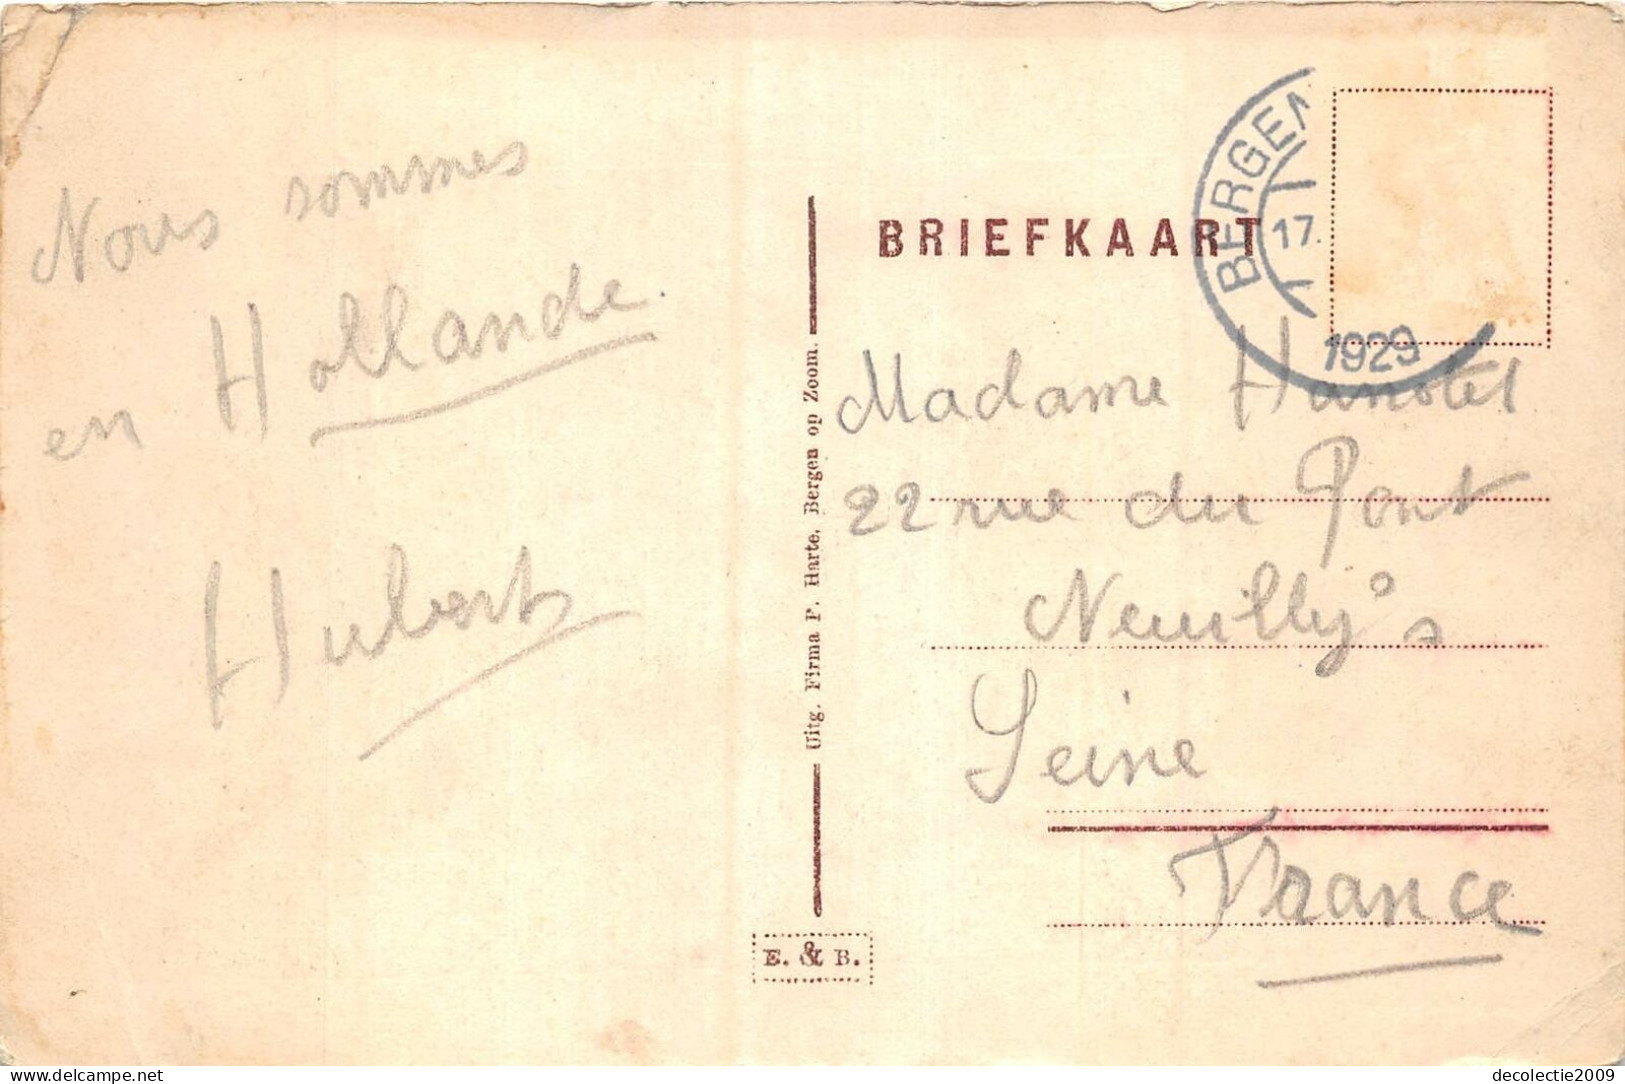 Nous sommes
en Hollande.
Hubert
BRIEFKAART
BERGEN
17.
1929
Madame
22 rue du Pont
Neuilly s
Seine
France
Uitg. Firma P. Harte, Bergen op Zoom.
E. & B.
delcampe.net
decolectie2009